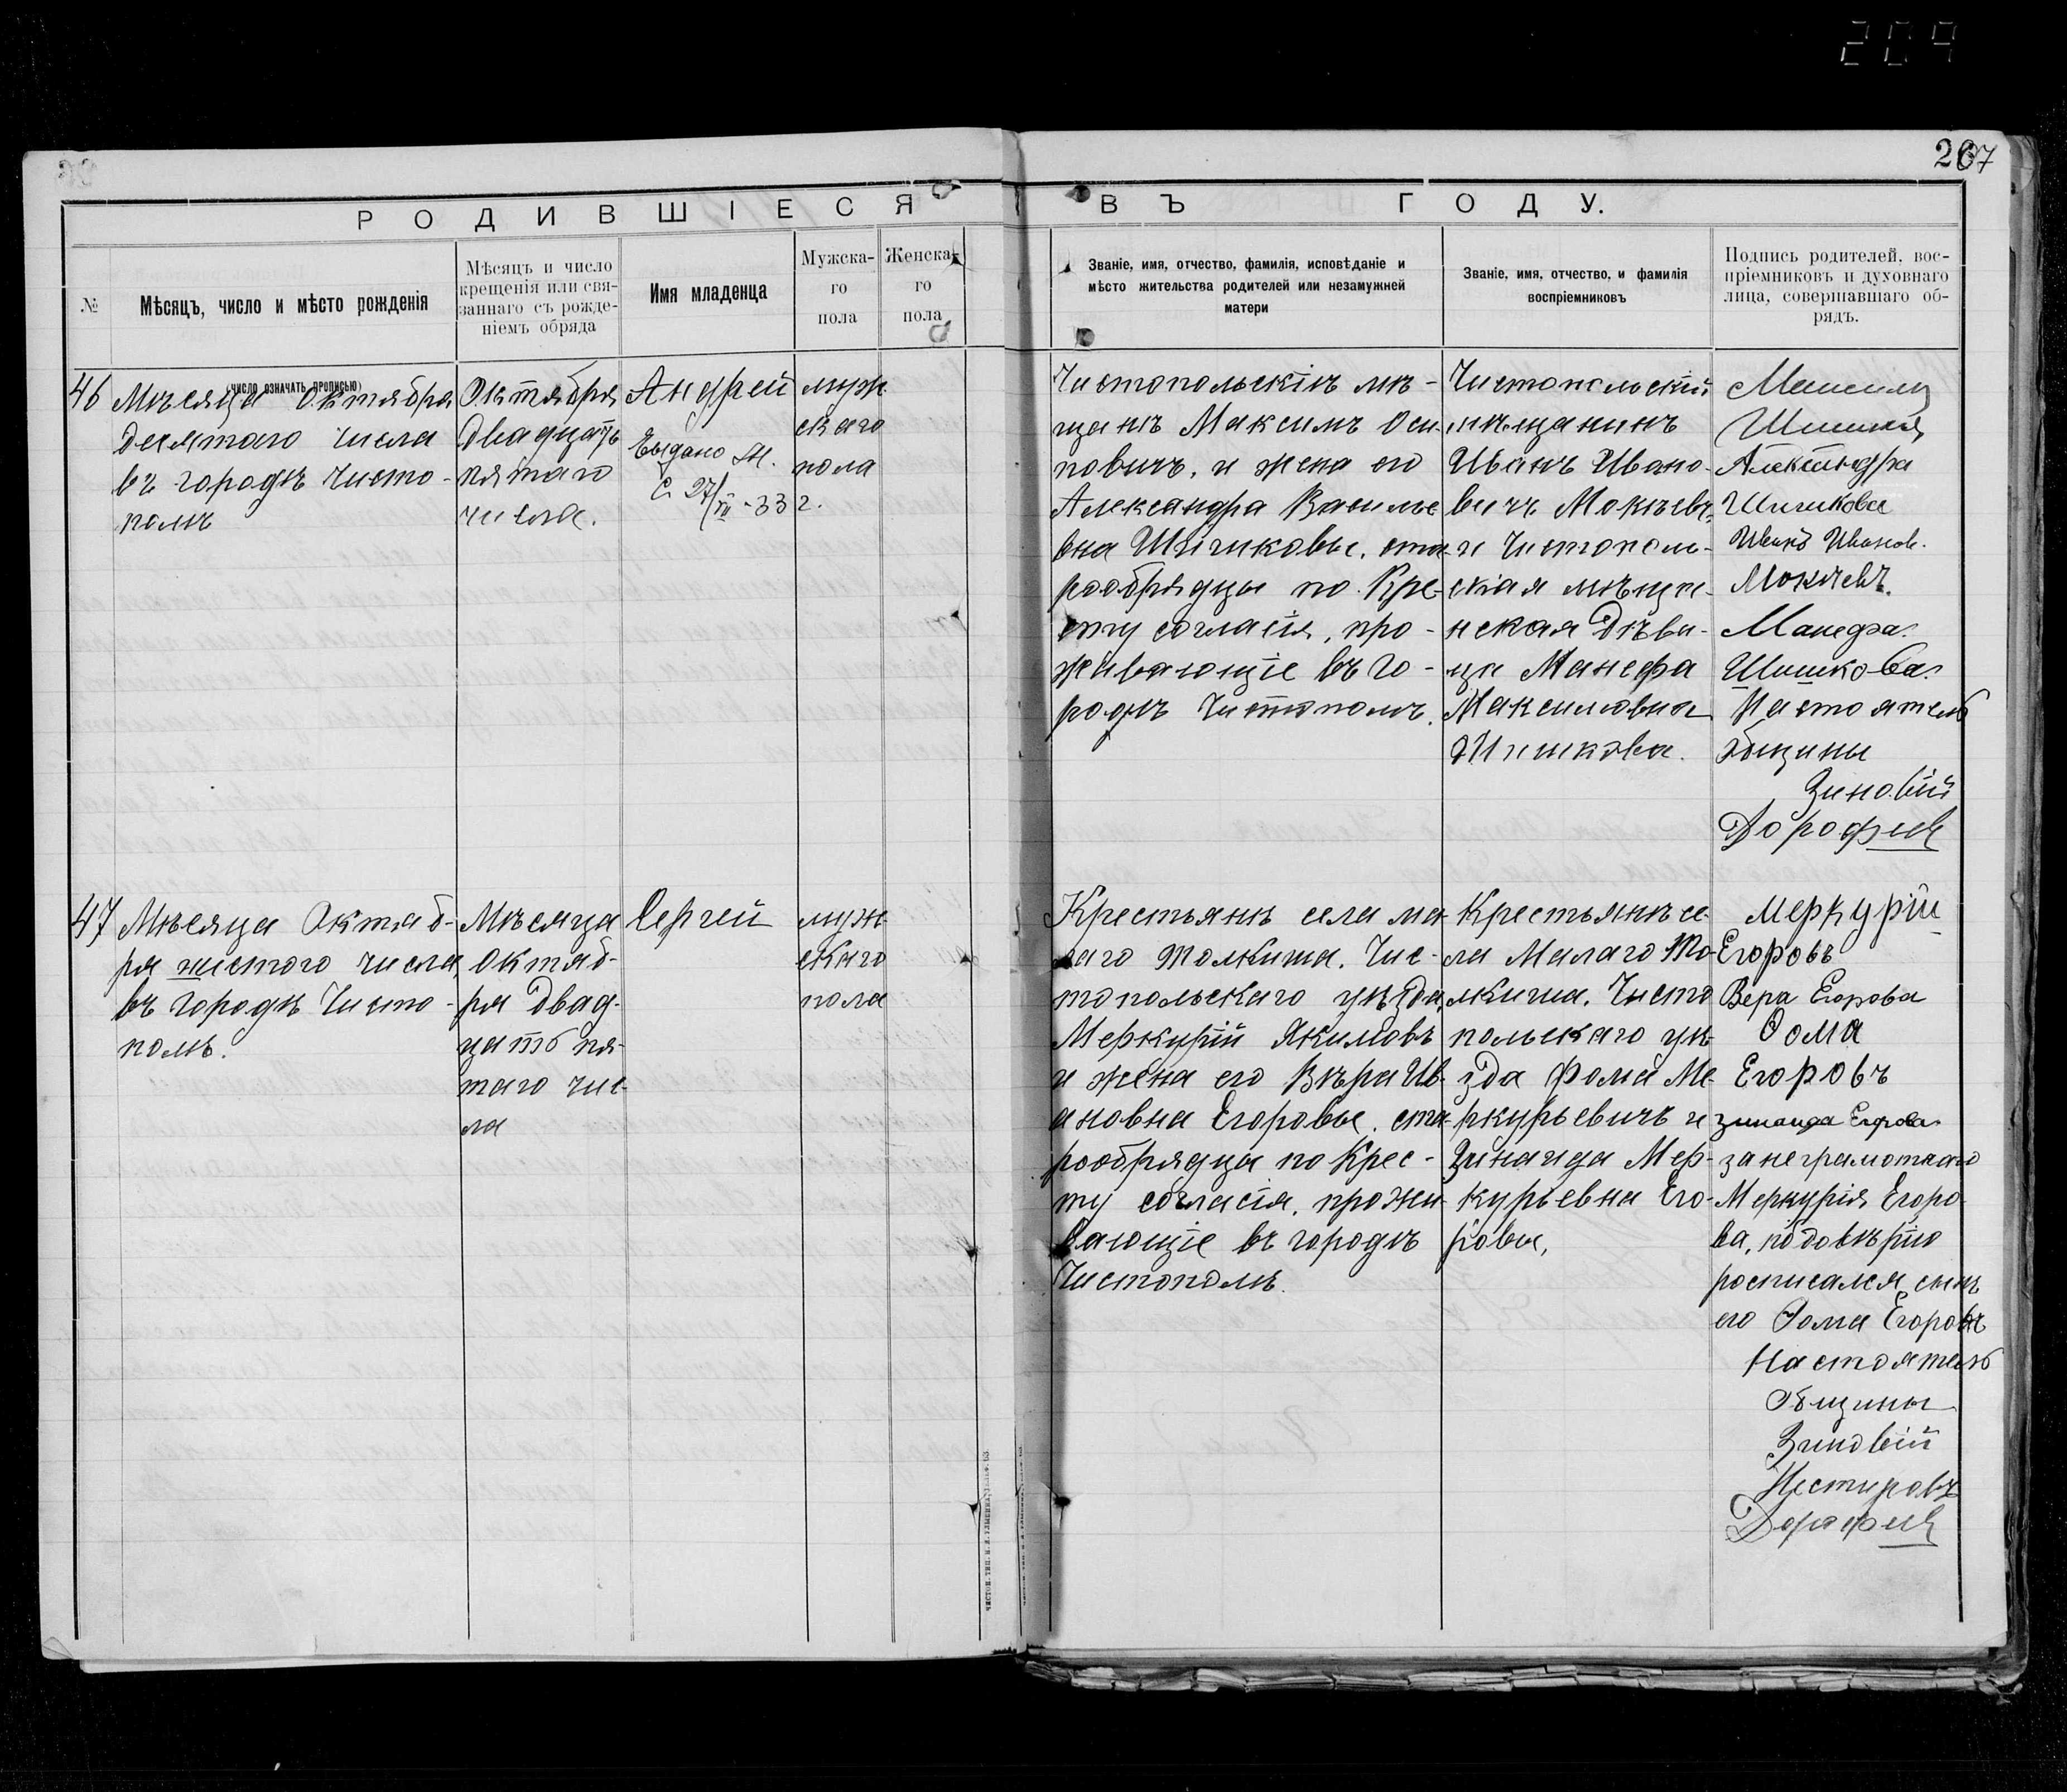 209
267
РОДИВШІЕСЯ ВЪ ГОДУ.
№
Мѣсяцъ, число и мѣсто рожденія
(число означать прописью)
Мѣсяцъ и число
крещенія или свя-
заннаго съ рожде-
ніемъ обряда
Имя младенца
Мужска-
го
пола
Женска-
го
пола
Званіе, имя, отчество, фамилія, исповѣданіе и
мѣсто жительства родителей или незамужней
матери
Званіе, имя, отчество, и фамилія
воспріемниковъ
Подпись родителей, вос-
пріемниковъ и духовнаго
лица, совершавшаго об-
рядъ.
46
Мѣсяца Октября
десятаго числа
въ городѣ Чисто-
полѣ
Октября
двадцать
пятаго
числа.
Андрей
Выдано
С. 27/III-33 г.
муж
скаго
пола
Чистопольскіѣ мѣ-
щанѣ Максимъ Оси-
повичъ, и жена его
Александра Василье
вна Шишковы, ста-
рообрядцы по Кре-
сту согласія, про-
живающіе въ го-
родѣ Чистополѣ.
Чистопольскій
мѣщанинъ
Иванъ Ивано-
вичъ Мокѣевъ,
и Чистополь-
ская мѣща-
нская дѣви-
ца Манефа
Максимовна
Шишкова.
Максимъ
Шишковъ
Александра
Шишкова
Иванъ Иванов.
Мокѣевъ.
Манефа
Шишкова
Настоятель
общины
Зиновій
Дорофеев
47
Мѣсяца Октяб-
ря шестого числа
въ городѣ Чисто-
полѣ.
Мѣсяца
октяб-
ря двад-
цать пя-
таго чис-
ла
Сергей
муж-
скаго
пола
Крестьянѣ села ма-
лаго Толкиша. Чис-
топольскаго уѣзда,
Меркурій Якимовъ
и жена его Вѣра Ив-
ановна Егоровы. ста-
рообрядцы по Крес-
ту согласія, прожи-
вающіе въ городѣ
Чистополѣ.
Крестьянѣ се-
ла Малаго То-
лкиша. Чисто
польскаго уѣ-
зда Фома Ме-
ркурьевичъ и
Зинаида Мер-
курьевна Его-
ровы,
Меркурій
Егоровъ
Вера Егорова
Ѳома
Егоровъ
Зинаида Егорова
за неграмотнаго
Меркурія Егоро-
ва, по довѣрію
росписался сынъ
его Ѳома Егоровъ
Настоятель
Общины
Зиновій
Нестировъ
Дорофеев